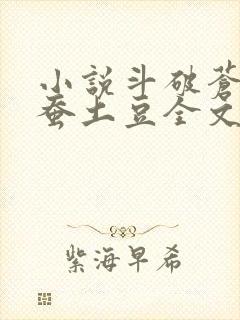 小說斗破蒼
蚕土豆全文
紫海早希